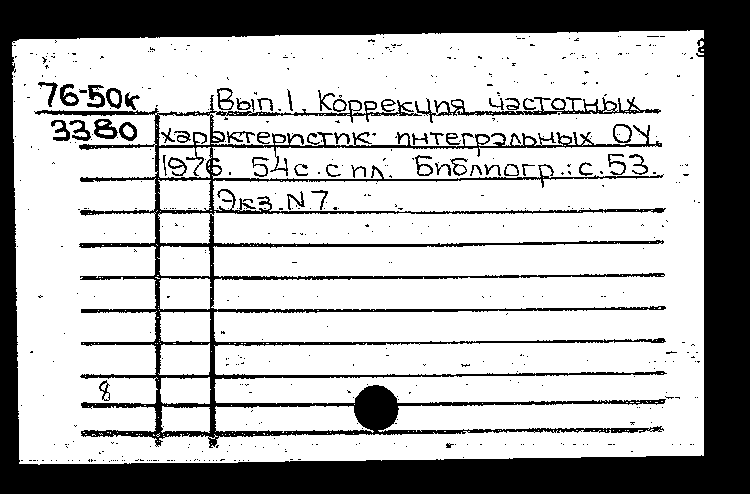 2
76-50к Вып. 1. Коррекция частотных
3380 характеристик интегральных ОУ.
1976. 54 с. с ил. Библиогр.: с. 53.
Экз. N 7.
8